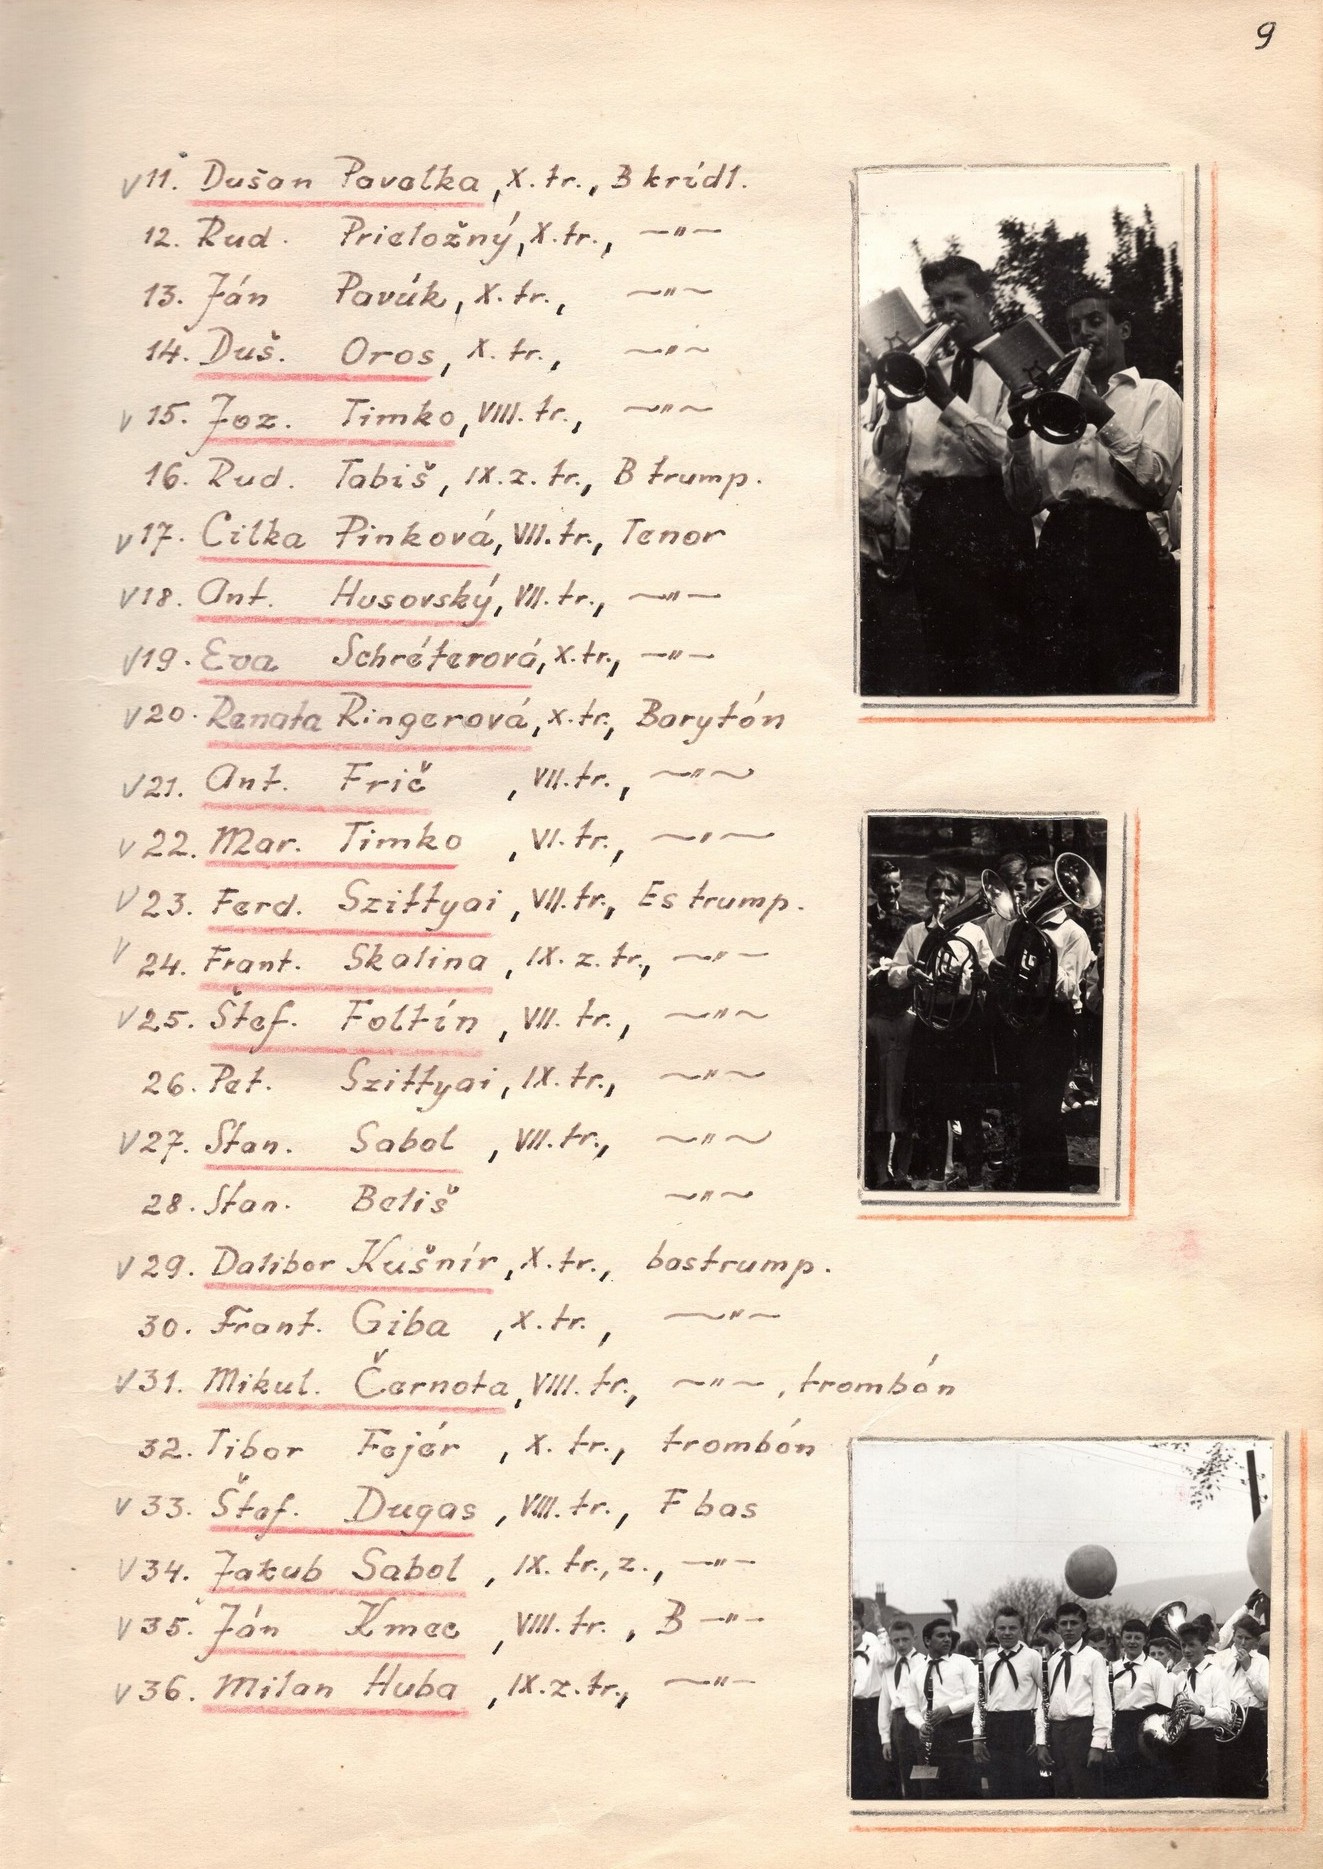 9
v 11. Dušan Pavolka, X. tr., B krídl.
12. Rud. Prieložný, X. tr., —"—
13. Ján Pavúk, X. tr., —"—
14. Duš. Oros, X. tr., —"—
v 15. Joz. Timko, VIII. tr., —"—
16. Rud. Tabiš, IX. z. tr., B trump.
v 17. Cilka Pinková, VII. tr., Tenor
v 18. Ant. Husovský, VII. tr., —"—
v 19. Eva Schréterová, X. tr., —"—
v 20. Renata Ringerová, X. tr., Barytón
v 21. Ant. Frič, VII. tr., —"—
v 22. Mar. Timko, VI. tr., —"—
v 23. Ferd. Szittyai, VII. tr., Es trump.
v 24. Frant. Skalina, IX. z. tr., —"—
v 25. Štef. Foltín, VII. tr., —"—
26. Pet. Szittyai, IX. tr., —"—
v 27. Stan. Sabol, VII. tr., —"—
28. Stan. Beliš —"—
v 29. Dalibor Kušnír, X. tr., bastrump.
30. Frant. Giba, X. tr., —"—
v 31. Mikul. Černota, VIII. tr., —"—, trombón
32. Tibor Fejér, X. tr., trombón
v 33. Štef. Dugas, VIII. tr., F bas
v 34. Jakub Sabol, IX. tr., z., —"—
v 35. Ján Kmec, VIII. tr., B —"—
v 36. Milan Huba, IX. z. tr., —"—